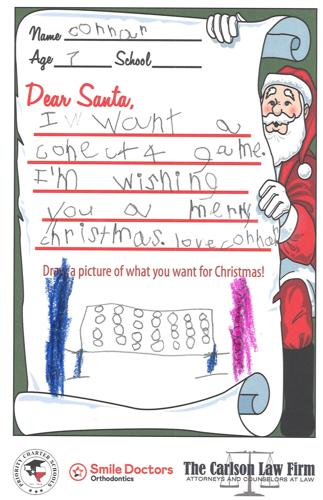 Name connar
Age 7 School
Dear Santa,
I want a
conect 4 game.
I'm wishing
you a merry
christmas. love connar
Draw a picture of what you want for Christmas!
PRIORITY CHARTER SCHOOLS
Smile Doctors
Orthodontics
The Carlson Law Firm
ATTORNEYS AND COUNSELORS AT LAW